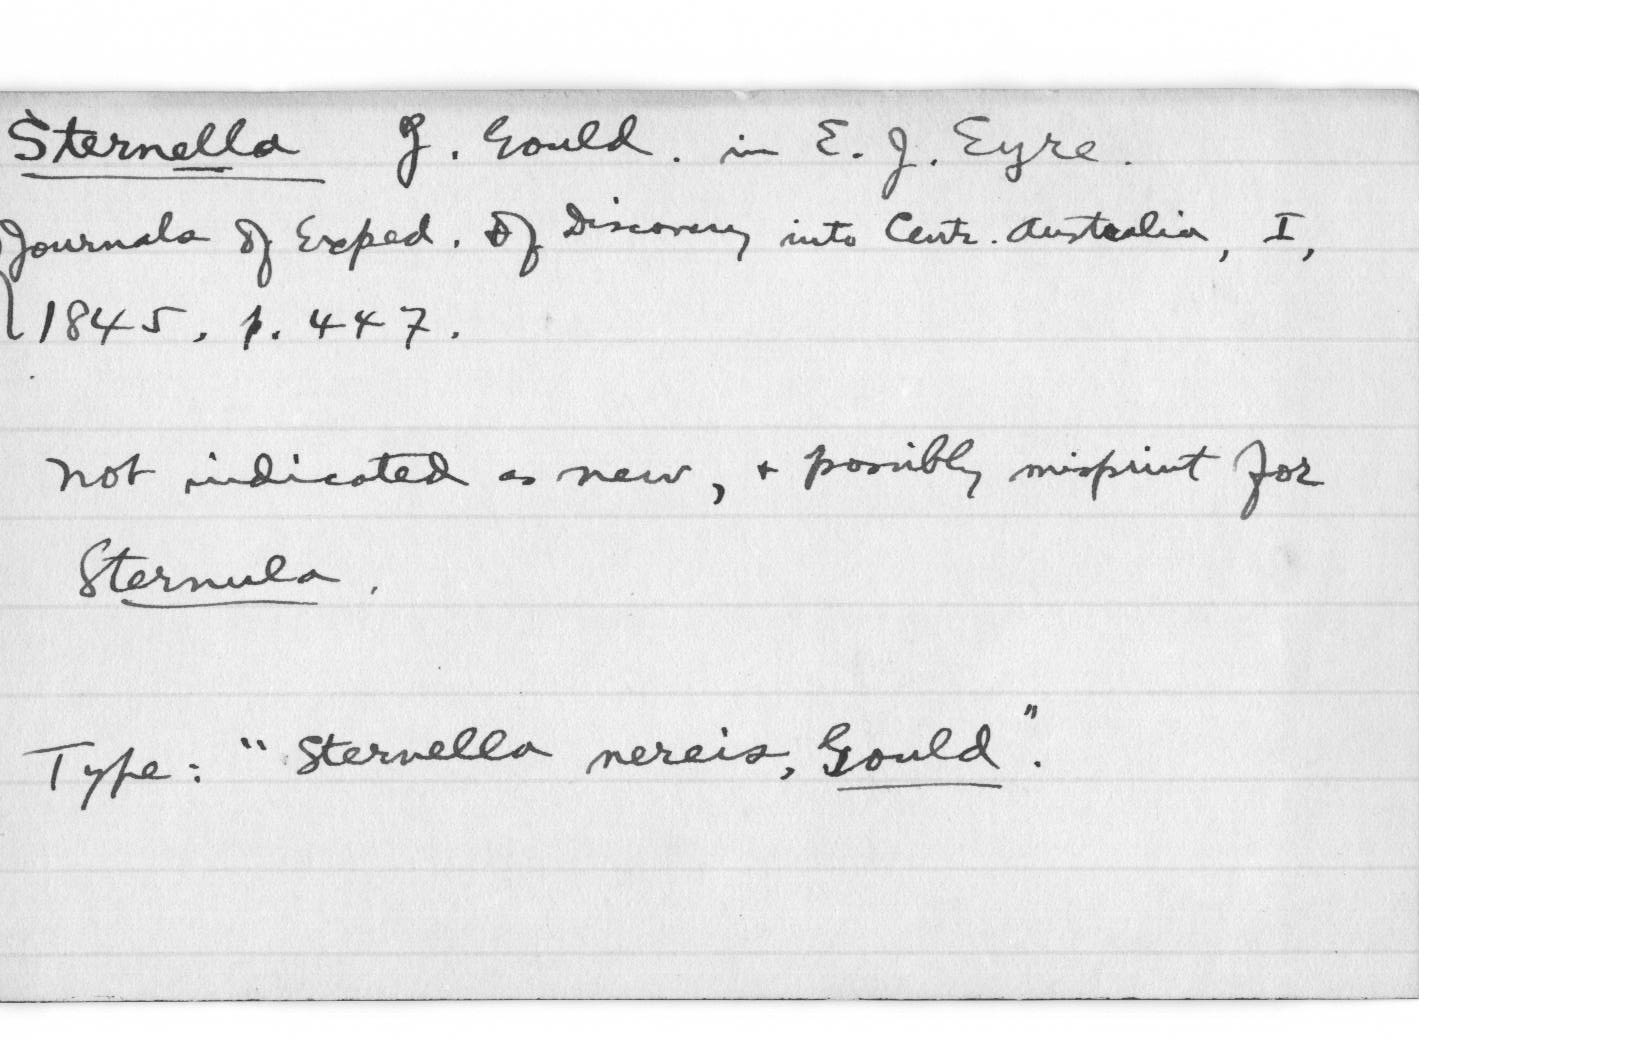 Sternella J. Gould. in E. J. Eyre.
Journals of Exped. of Discovery into Centr. Australia, I,
1845, p. 447.
not indicated as new, + possibly misprint for
Sternula.
Type: "Sternella nereis, Gould".